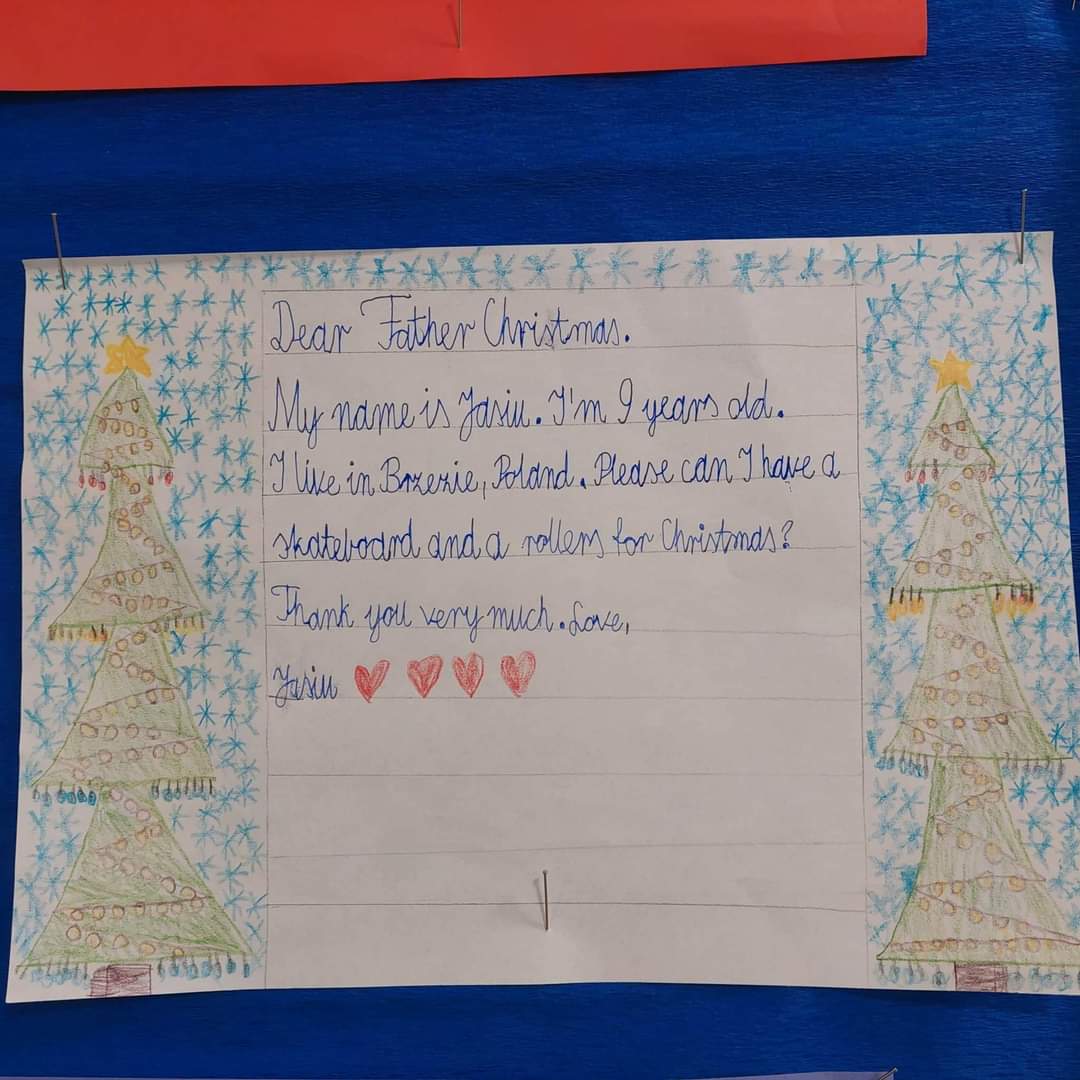 Dear Father Christmas.
My name is Jasiu. I'm 9 years old.
I live in Brzezie, Poland. Please can I have a
skateboard and a rollers for Christmas?
Thank you very much. Love,
Jasiu